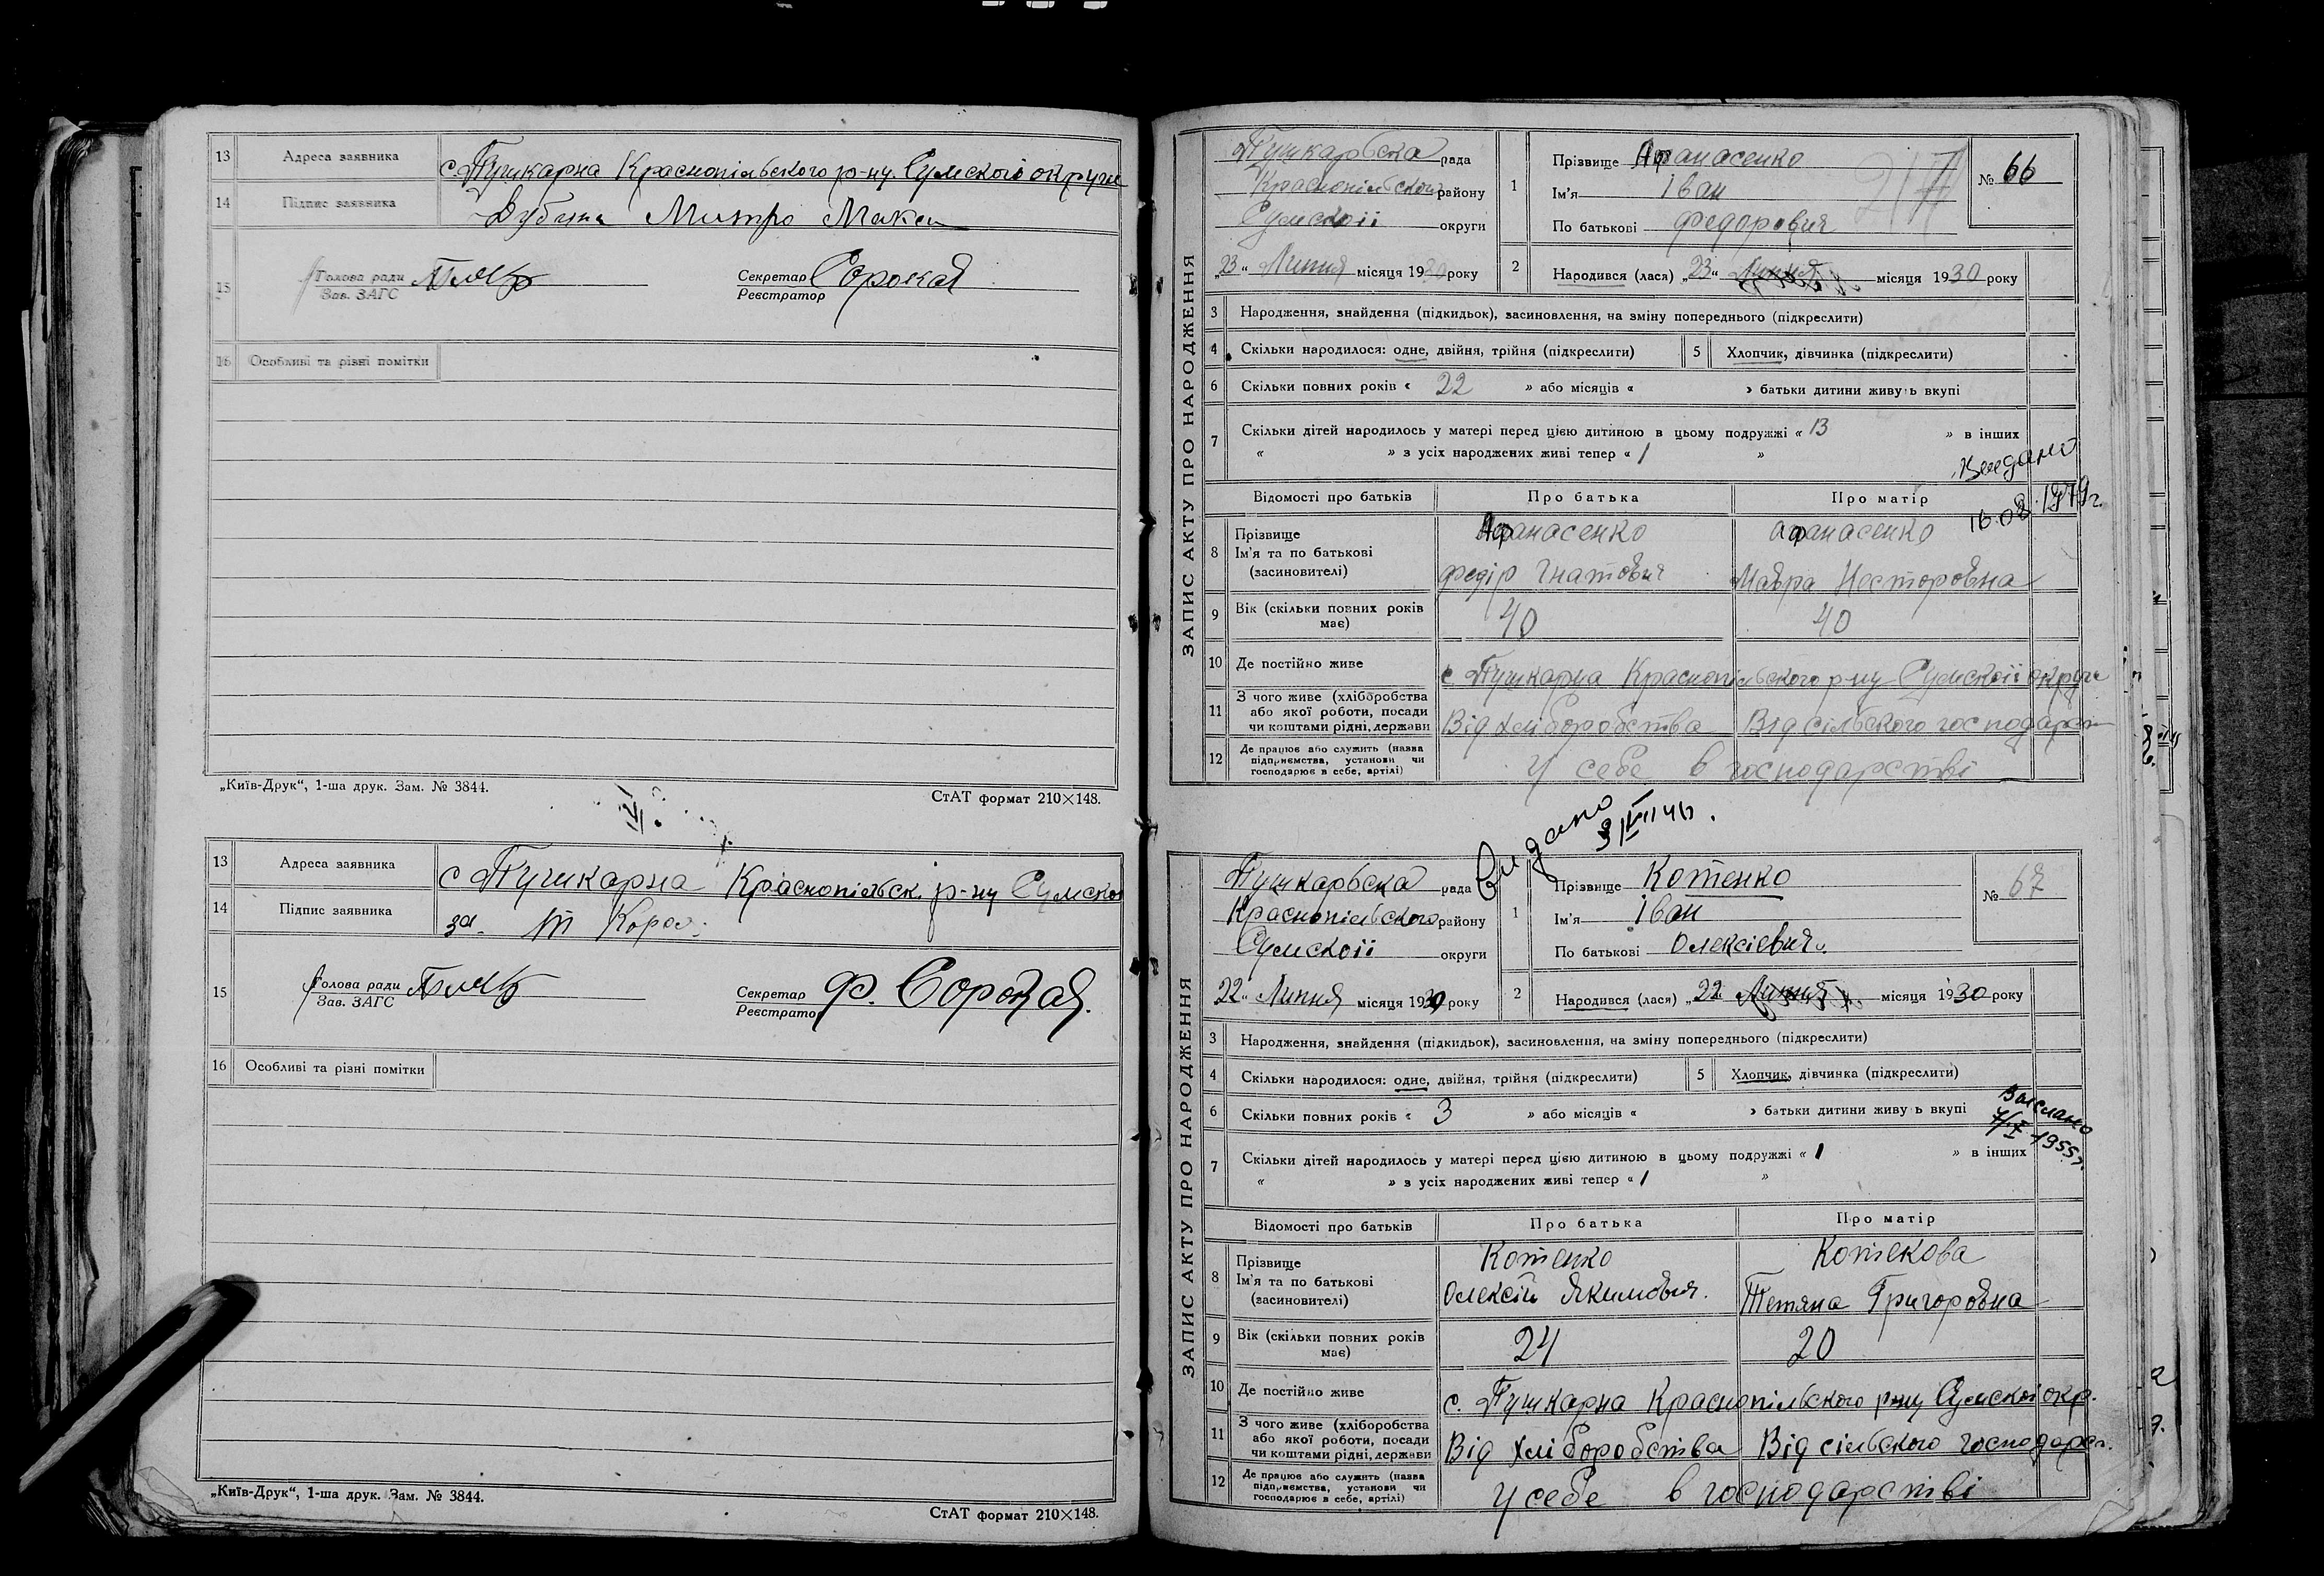 13 Адреса заявника с. Пушкарна Краснопільського р-ну. Сумского округи
14 Підпис заявника Дубина Митро Макси
15 Голова ради Секретар Сорокая
Зав. ЗАГС Реєстратор
16 Особливі та різні помітки
„Київ-Друк“, 1-ша друк. Зам. № 3844.
СтАТ формат 210×148.
13 Адреса заявника с Пушкарна Краснопільск. р-ну Сумской
14 Підпис заявника за
15 Голова ради Секретар Ф. Сорокая.
Зав. ЗАГС Реєстратор
16 Особливі та різні помітки
„Київ-Друк“, 1-ша друк. Зам. № 3844.
СтАТ формат 210×148.
ЗАПИС АКТУ ПРО НАРОДЖЕННЯ
Пушкарьска рада
Краснопільского району
Сумскоїі округи
„23“ Липня місяця 1930 року
1 Прізвище Афанасенко
Ім'я Іван
По батькові Федорович
№ 66
2 Народився (лася) „23“ Липня місяця 1930 року
3 Народження, знайдення (підкидьок), засиновлення, на зміну попереднього (підкреслити)
4 Скільки народилося: одне, двійня, трійня (підкреслити) 5 Хлопчик, дівчинка (підкреслити)
6 Скільки повних років « 22 » або місяців « » батьки дитини живуть вкупі
7 Скільки дітей народилось у матері перед цією дитиною в цьому подружжі « 13 » в інших
« » з усіх народжених живі тепер « 1 »
Видано
16.08.1979г.
Відомості про батьків Про батька Про матір
8 Прізвище Афанасенко Афанасенко
Ім'я та по батькові Федір Гнатович Мавра Несторовна
(засновителі)
9 Вік (скільки повних років має) 40 40
10 Де постійно живе с Пушкарна Краснопільского р-ну Сумскоїі округи
11 З чого живе (хліборобства
або якої роботи, посади
чи коштами рідні, держави Від хліборобства Від сільского господарст
12 Де працює або служить (назва
підприємства, установи чи
господарює в себе, артілі) У себе в господарстві
Видано
ЗАПИС АКТУ ПРО НАРОДЖЕННЯ
Пушкарьска рада
Краснопільского району
Сумскоїі округи
22“ Липня місяця 1930 року
1 Прізвище Котенко
Ім'я Іван
По батькові Олексієвич
№ 67
2 Народився (лася) „22 Липня місяця 1930 року
3 Народження, знайдення (підкидьок), засиновлення, на зміну попереднього (підкреслити)
4 Скільки народилося: одне, двійня, трійня (підкреслити) 5 Хлопчик, дівчинка (підкреслити)
6 Скільки повних років « 3 » або місяців « » батьки дитини живуть вкупі
Выслано
1955г.
7 Скільки дітей народилось у матері перед цією дитиною в цьому подружжі « 1 » в інших
« » з усіх народжених живі тепер « 1 »
Відомості про батьків Про батька Про матір
8 Прізвище Котенко Котекова
Ім'я та по батькові Олексій Якимович. Тетяна Григоровна
(засиновителі)
9 Вік (скільки повних років має) 24 20
10 Де постійно живе с. Пушкарна Краснопільского р-ну Сумскої окр.
11 З чого живе (хліборобства
або якої роботи, посади
чи коштами рідні, держави Від хліборобства Від сільского господарст.
12 Де працює або служить (назва
підприємства, установи чи
господарює в себе, артілі) У себе в господарстві